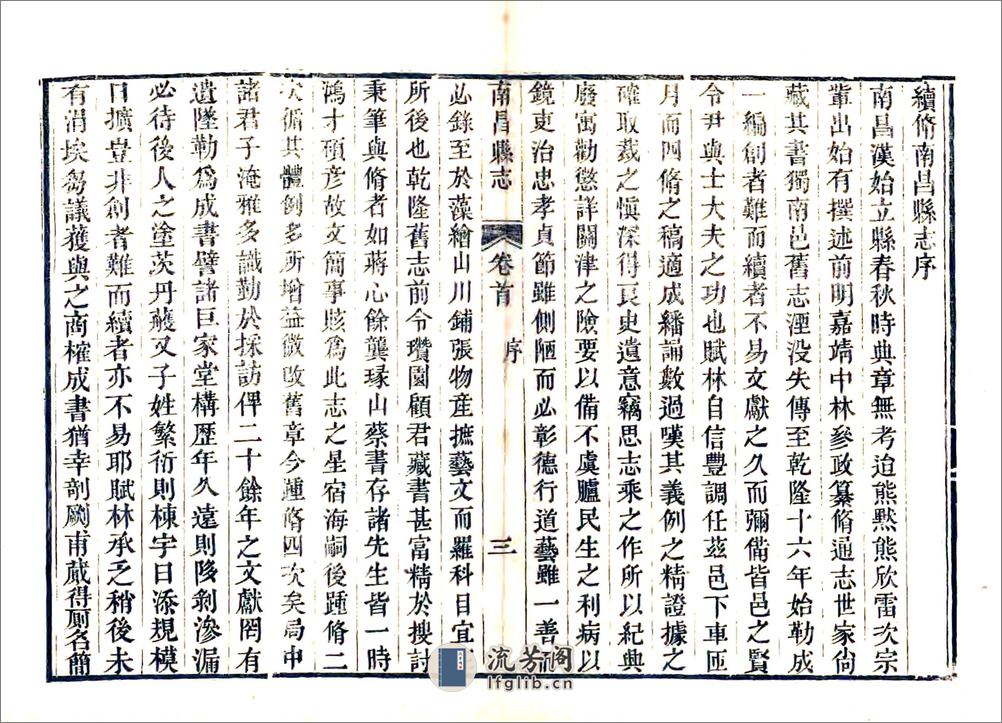 續脩南昌縣志序
南昌漢始立縣春秋時典章無考迨熊黙熊欣雷次宗
輩出始有撰述前明嘉靖中林參政纂脩通志世家尙
藏其書獨南邑舊志湮没失傳至乾隆十六年始勒成
一編創者難而續者不易文獻之久而彌備皆邑之賢
令尹與士大夫之功也賦林自信豐調任茲邑下車匝
月而四脩之稿適成繙誦數過嘆其義例之精證據之
確取裁之愼深得良史遺意竊思志乘之作所以紀典
廢寓勸懲詳關津之險要以備不虞臚民生之利病以
鏡吏治忠孝貞節雖側陋而必彰德行道藝雖一善而
南昌縣志 卷首 序 三
必錄至於藻繪山川鋪張物産摭藝文而羅科目宜
所後也乾隆舊志前令瓚園顧君藏書甚富精於搜討
秉筆與脩者如蔣心餘龔瑑山蔡書存諸先生皆一時
鴻才碩彥故文簡事賅爲此志之星宿海嗣後踵脩二
次循其體例多所增益微改舊章今踵脩四次矣局中
諸君子淹雅多識勤於採訪俾二十餘年之文獻罔有
遺墜勒爲成書譬諸巨家堂構歷年久遠則陊剝滲漏
必待後人之塗茨丹雘又子姓繁衍則棟宇日添規模
日擴豈非創者難而續者亦不易耶賦林承乏稍後未
有涓埃芻議獲與之商榷成書猶幸剞劂甫蕆得厠名簡
流芳閣
lfglib.cn